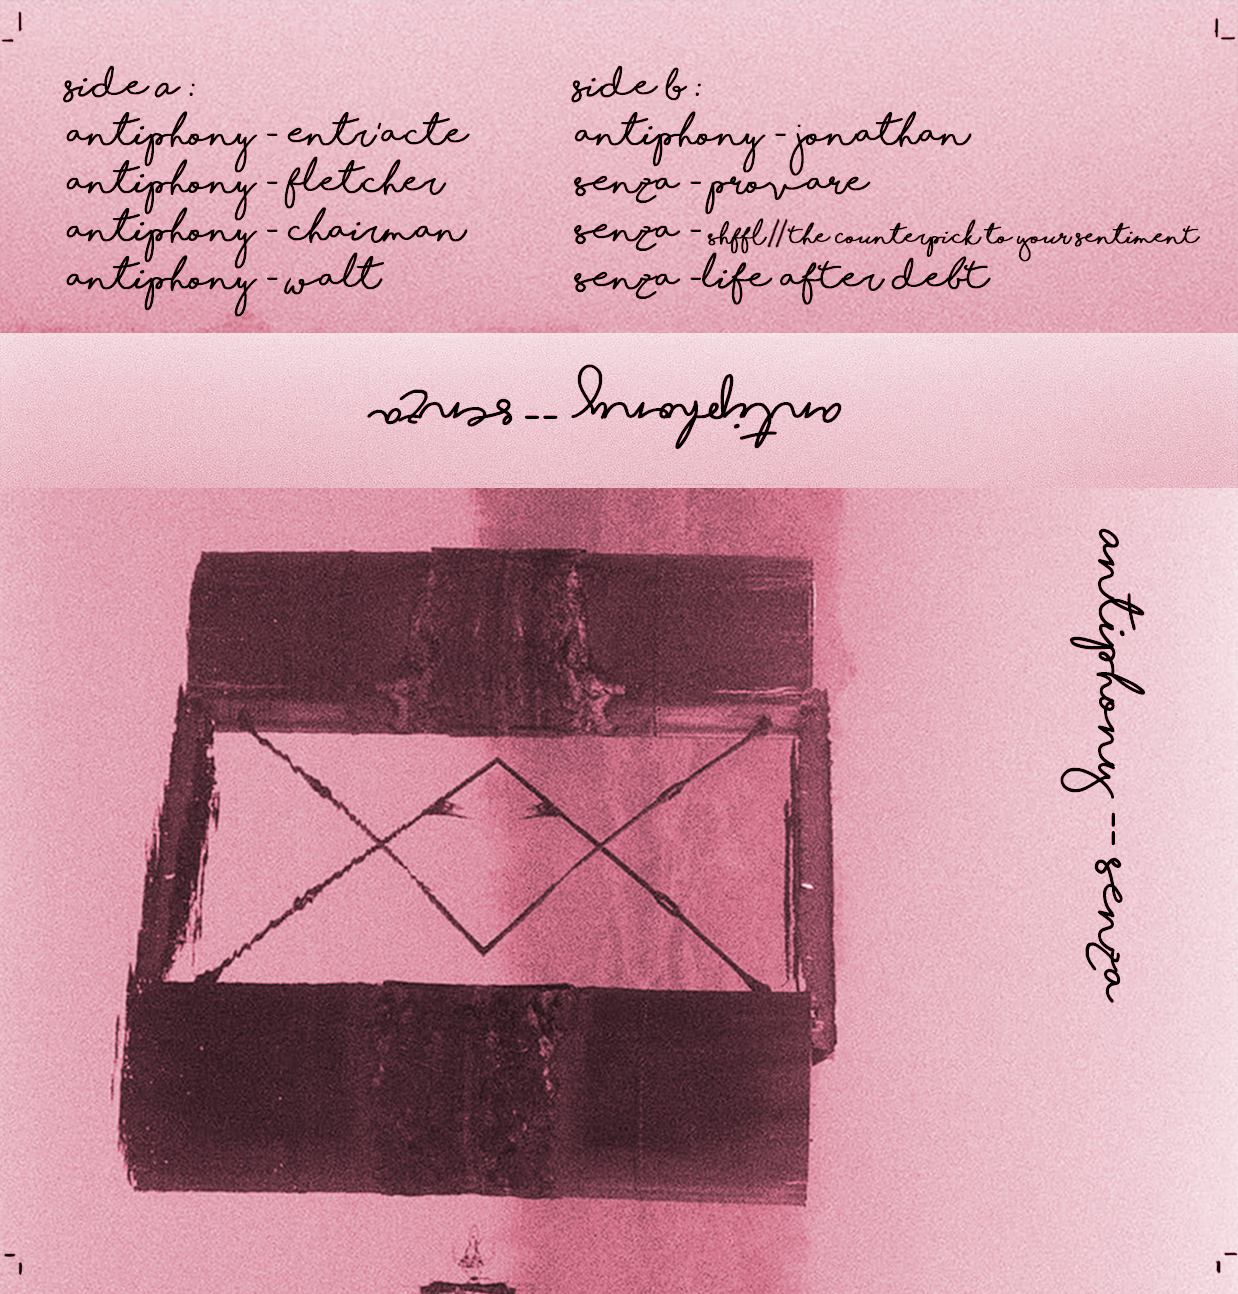 side a :
antiphony - entr'acte
antiphony - fletcher
antiphony - chairman
antiphony - walt
side b :
antiphony - jonathan
senza - provare
senza - shffl//the counterpick to your sentiment
senza - life after debt
antiphony -- senza
antiphony -- senza